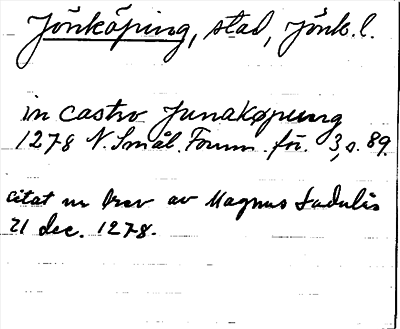 Jönköping, stad, Jönk. l.
in castro Junakøpung
1278 N. Smål. Fornm. för. 3, s. 89.
citat ur brev av Magnus Ladulås
21 dec. 1278.